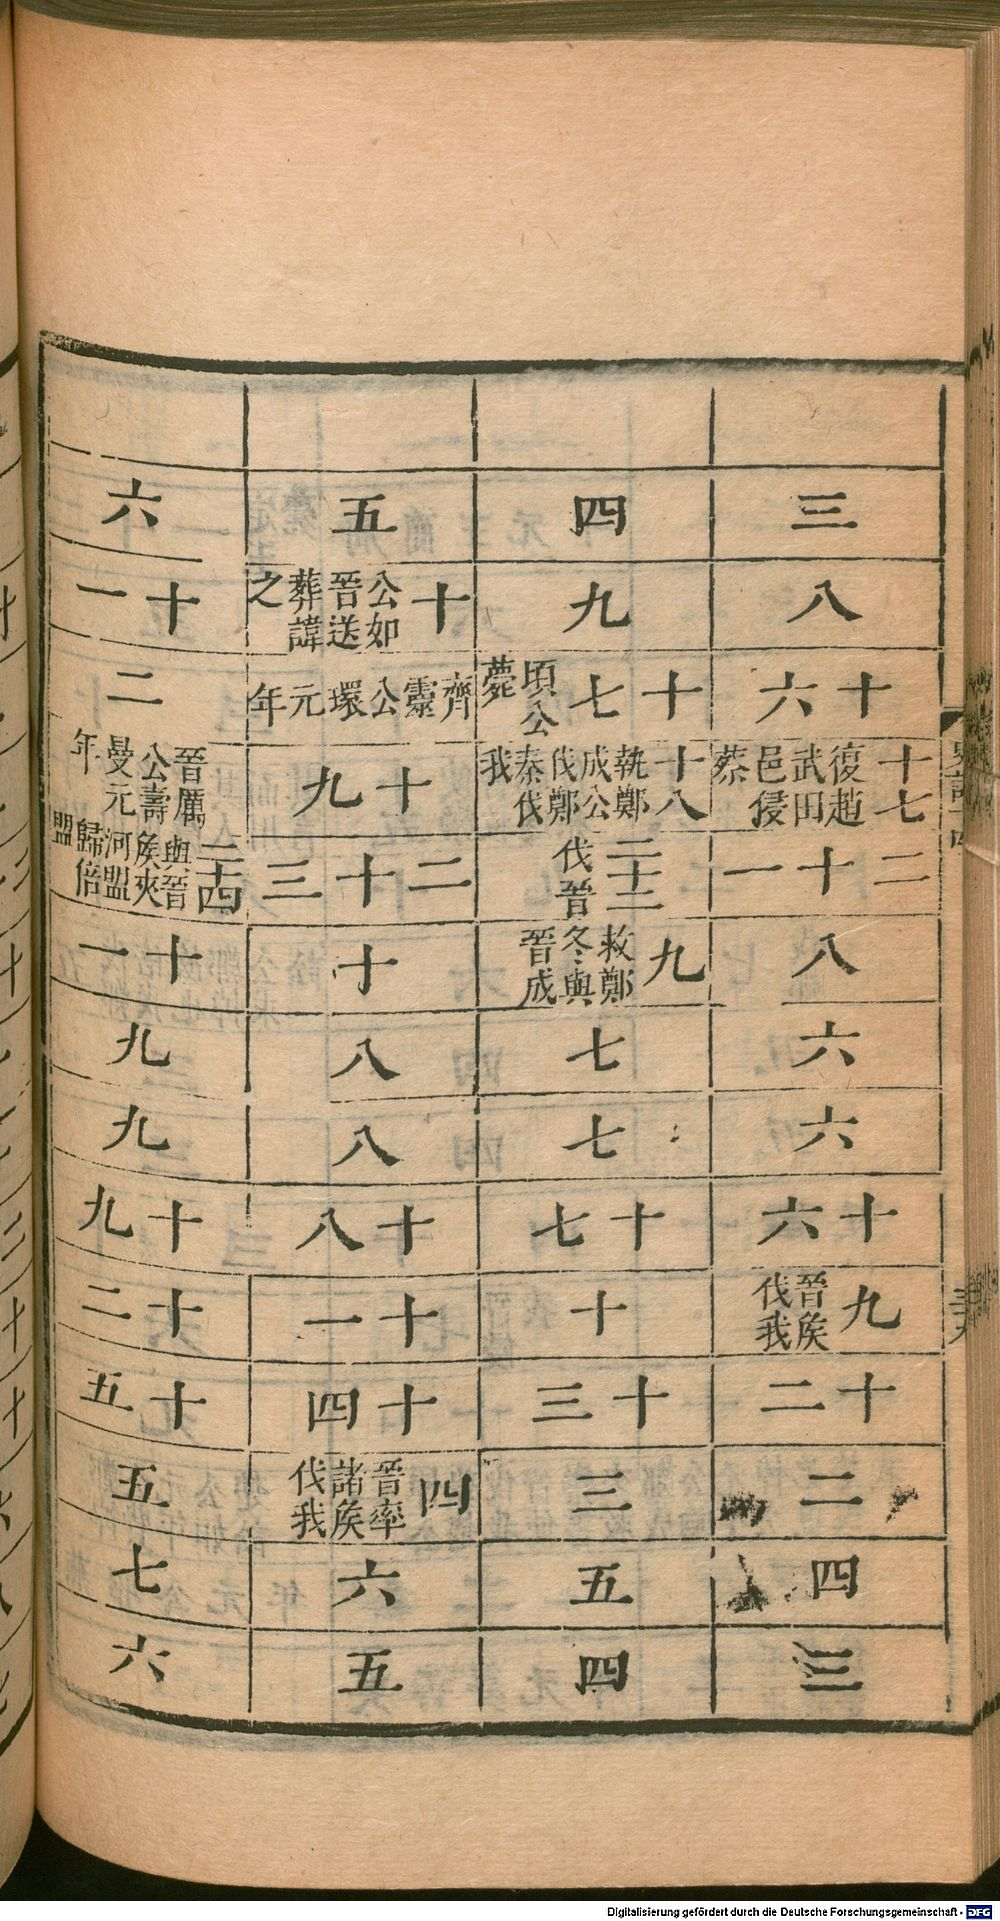 三
八
十六
十七 復趙武田邑侵蔡
二十一
八
六
六
十六
九 晉矦伐我
十二
二
四
三
四
九
十七 頃公薨
十八 執鄭成公伐鄭秦伐我
二十二 伐晉
九 救鄭冬與晉成
七
七
十七
十
十三
三
五
四
五
十 公如晉送葬諱之
齊靈公環元年
十九
二十三
十
八
八
十八
十一
十四
四 晉率諸矦伐我
六
五
六
十一
二
晉厲公壽曼元年
二十四 與晉矦夾河盟歸倍盟
十一
九
九
十九
十二
十五
五
七
六
Digitalisierung gefördert durch die Deutsche Forschungsgemeinschaft - DFG